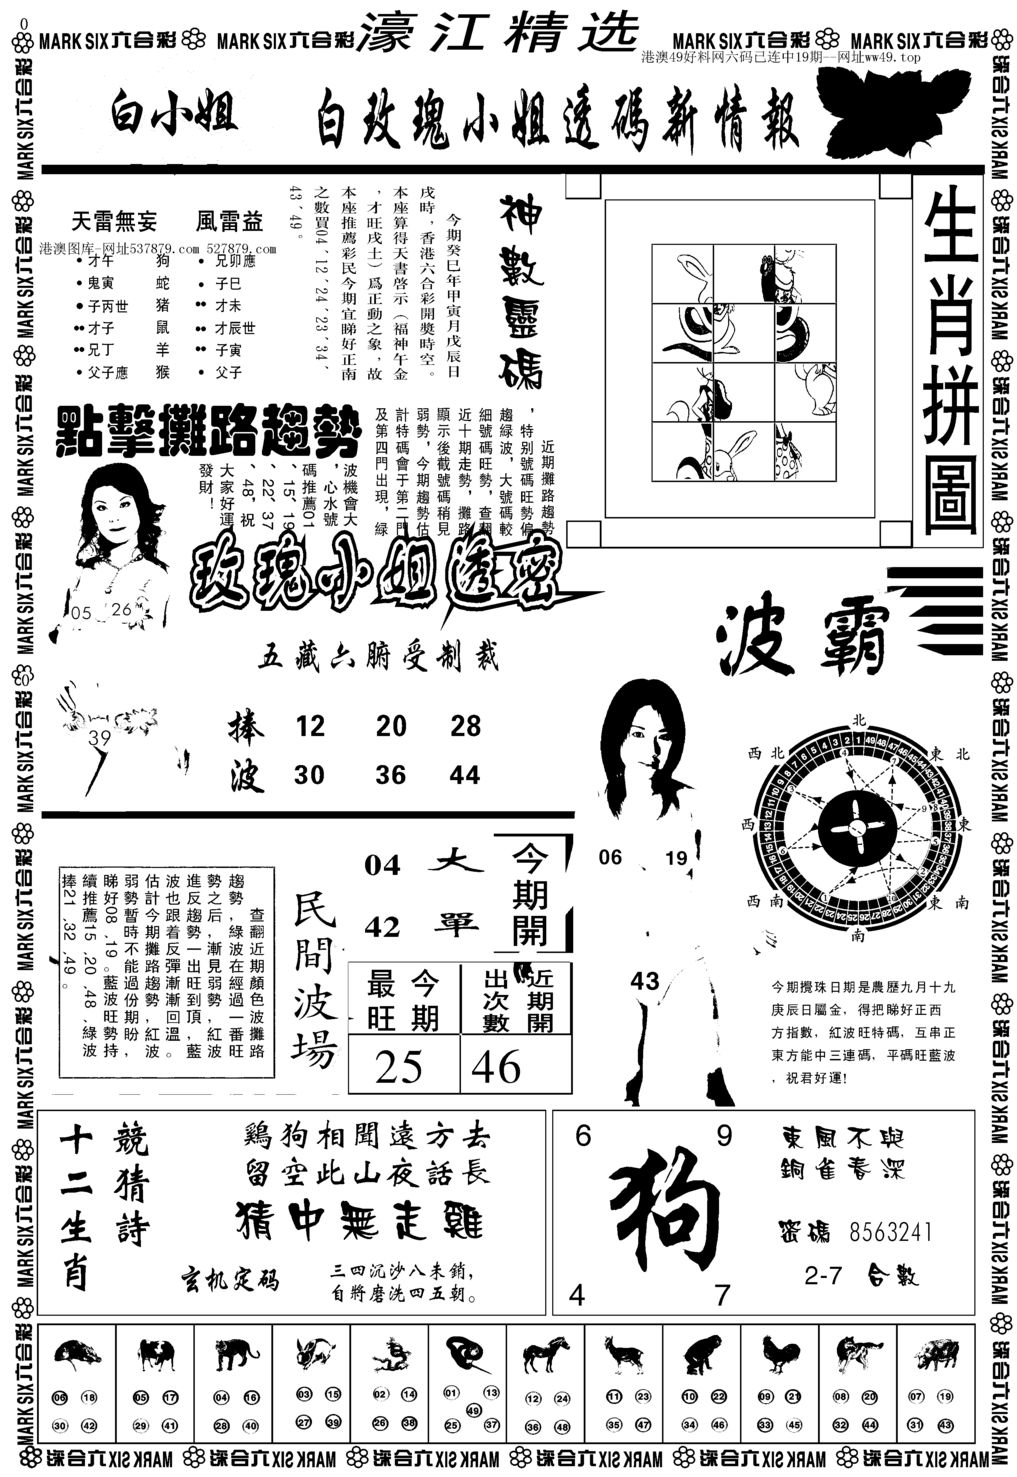 0
MARK SIX六合彩 MARK SIX六合彩 濠江精选 MARK SIX六合彩 MARK SIX六合彩
港澳49好料网六码已连中19期——网址ww49.top
白小姐 白玫瑰小姐透碼新情報
天雷無妄 風雷益
港澳图库-网址537879.com 527879.com
才午 狗 兄卯應
鬼寅 蛇 子巳
子丙世 猪 才未
才子 鼠 才辰世
兄丁 羊 子寅
父子應 猴 父子
神數靈碼
今期癸巳年甲寅月戊辰日
戌時，香港六合彩開獎時空。
本座算得天書啓示（福神午金
，才旺戌土）爲正動之象，故
本座推薦彩民今期宜睇好正南
之數買04、12、24、23、34、
43、49。
生肖拼圖
點擊攤路趨勢
近期攤路趨勢
，特别號碼旺勢偏
趨緑波，大號碼較
細號碼旺勢，查翻
近十期走勢，攤路
顯示後截號碼稍見
弱勢，今期趨勢估
計特碼會于第二門
及第四門出現，緑
波機會大
，心水號
碼推薦01
、15、19
、22、37
、48，祝
大家好運
發財！
玫瑰小姐透密
05 26
39
五藏六腑受制裁
捧 12 20 28
波 30 36 44
波霸
06 19
43
北
西北 東北
西 東
西南 東南
南
今期攪珠日期是農歷九月十九
庚辰日屬金，得把睇好正西
方指數，紅波旺特碼，互串正
東方能中三連碼，平碼旺藍波
，祝君好運!
查翻近期顏色波攤路
趨勢，綠波在經過一番旺
勢之后，漸見弱勢，紅波
進反趨勢，一出旺到頂，藍
波也跟着反彈漸漸回溫。
估計今期攤路趨勢紅波，
弱勢暫時不能過份期盼，
睇好08、19。藍波旺勢持
續推薦15、20、48、綠波
捧21、32、49。
民間波場
04 大
42 單
今期開
今期最旺 近期開出次數
25 46
十二生肖
競猜詩
鷄狗相聞遠方去
留空此山夜話長
猜中無走雞
玄机定码
三四沉沙八未銷，
自將磨洗四五朝。
6 9
狗
4 7
東風不與
銅雀春深
密碼 8563241
2-7 合數
06 18 05 17 04 16 03 15 02 14 01 13 12 24 11 23 10 22 09 21 08 20 07 19
49
30 42 29 41 28 40 27 39 26 38 25 37 36 48 35 47 34 46 33 45 32 44 31 43
MARK SIX六合彩 MARK SIX六合彩 MARK SIX六合彩 MARK SIX六合彩 MARK SIX六合彩 MARK SIX六合彩